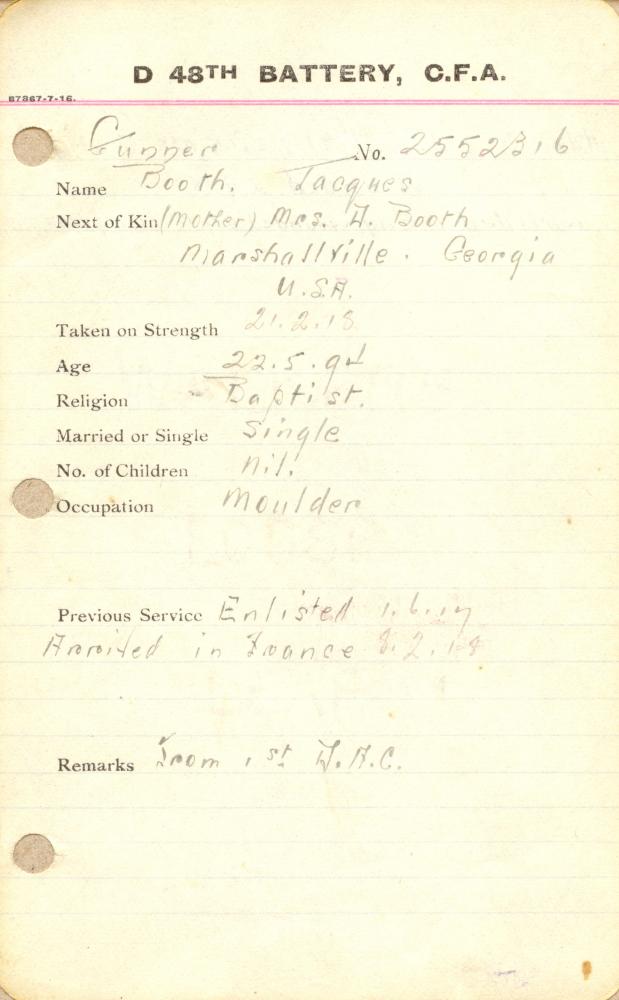 D 48TH BATTERY, C.F.A.
87867-7-16.
Gunner No. 2552316
Name Booth. Jacques
Next of Kin (Mother) Mrs. Booth
Marshallville. Georgia
U.S.A.
Taken on Strength 21.2.18
Age 22.5.94
Religion - Baptist.
Married or Single Single
No. of Children Nil.
Occupation Moulder
Previous Service Enlisted 1.6.17
Arrived in France 8.2.18
Remarks From 1st A.C.